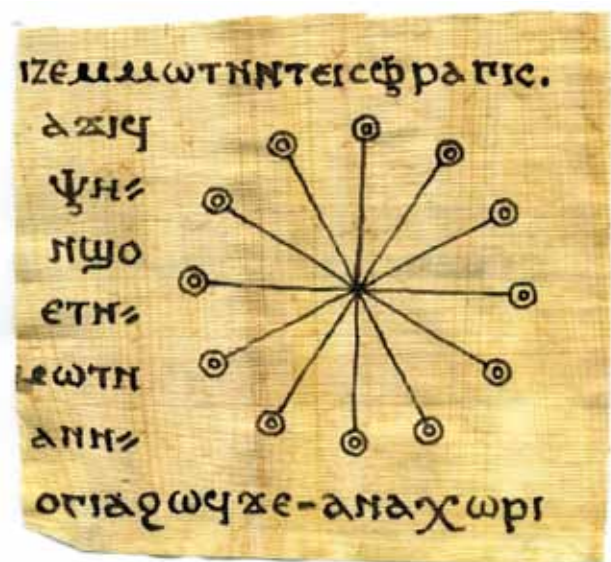 ⲓⲍⲉⲙⲙⲱⲧⲛⲛⲧⲉⲓⲥⲥⲫⲣⲁⲅⲓⲥ.
ⲁϫⲓϥ
ⲯⲏ⸗
ⲛϣⲟ
ⲉⲧⲛ⸗
ⲙⲱⲧⲛ
ⲁⲛⲛ⸗
ⲟⲅⲓⲁϩⲱϥϫⲉ-ⲁⲛⲁⲭⲱⲣⲓ